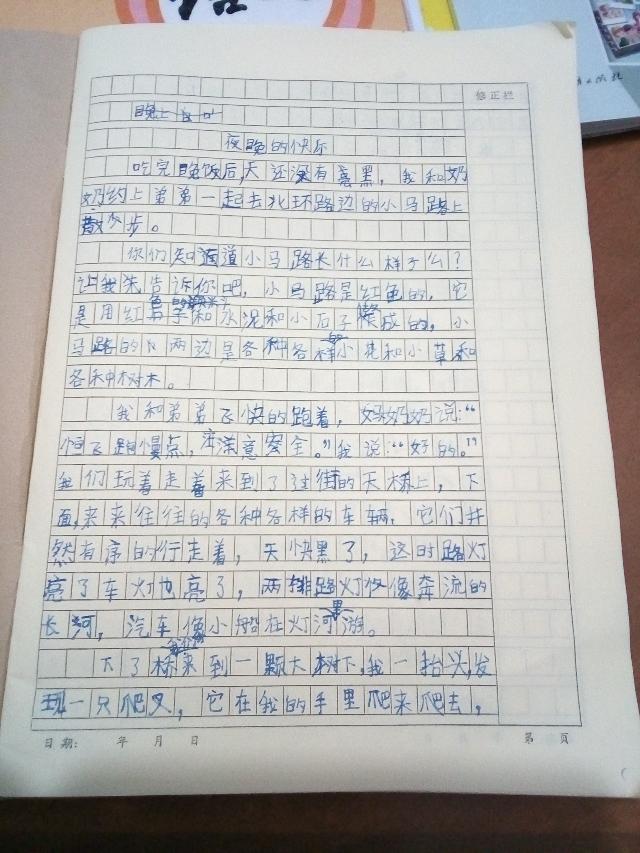 修正栏
晚上
夜晚的快乐
吃完晚饭后,天还没有黑,我和奶
奶约上弟弟一起去北环路边的小马路上
散步。
你们知道小马路长什么样子么?
让我先告诉你吧,小马路是红色的,它
是用红色的和水泥和小石子做成的,小
马路的两边是各种各样的小花和小草和
各种树木。
我和弟弟飞快的跑着,奶奶说:“
恒飞跑慢点,注满意安全。”我说:“好的。”
我们玩着走着来到了过街的天桥上,下
面,来来往往的各种各样的车辆,它们井
然有序的行走着,天快黑了,这时路灯
亮了车灯也亮了,两排路灯像奔流的
长河,汽车像小船在灯河里游。
下了桥我们来到一颗大树下,我一抬头,发
现一只爬叉,它在我的手里爬来爬去,
日期: 年 月 日 第 页